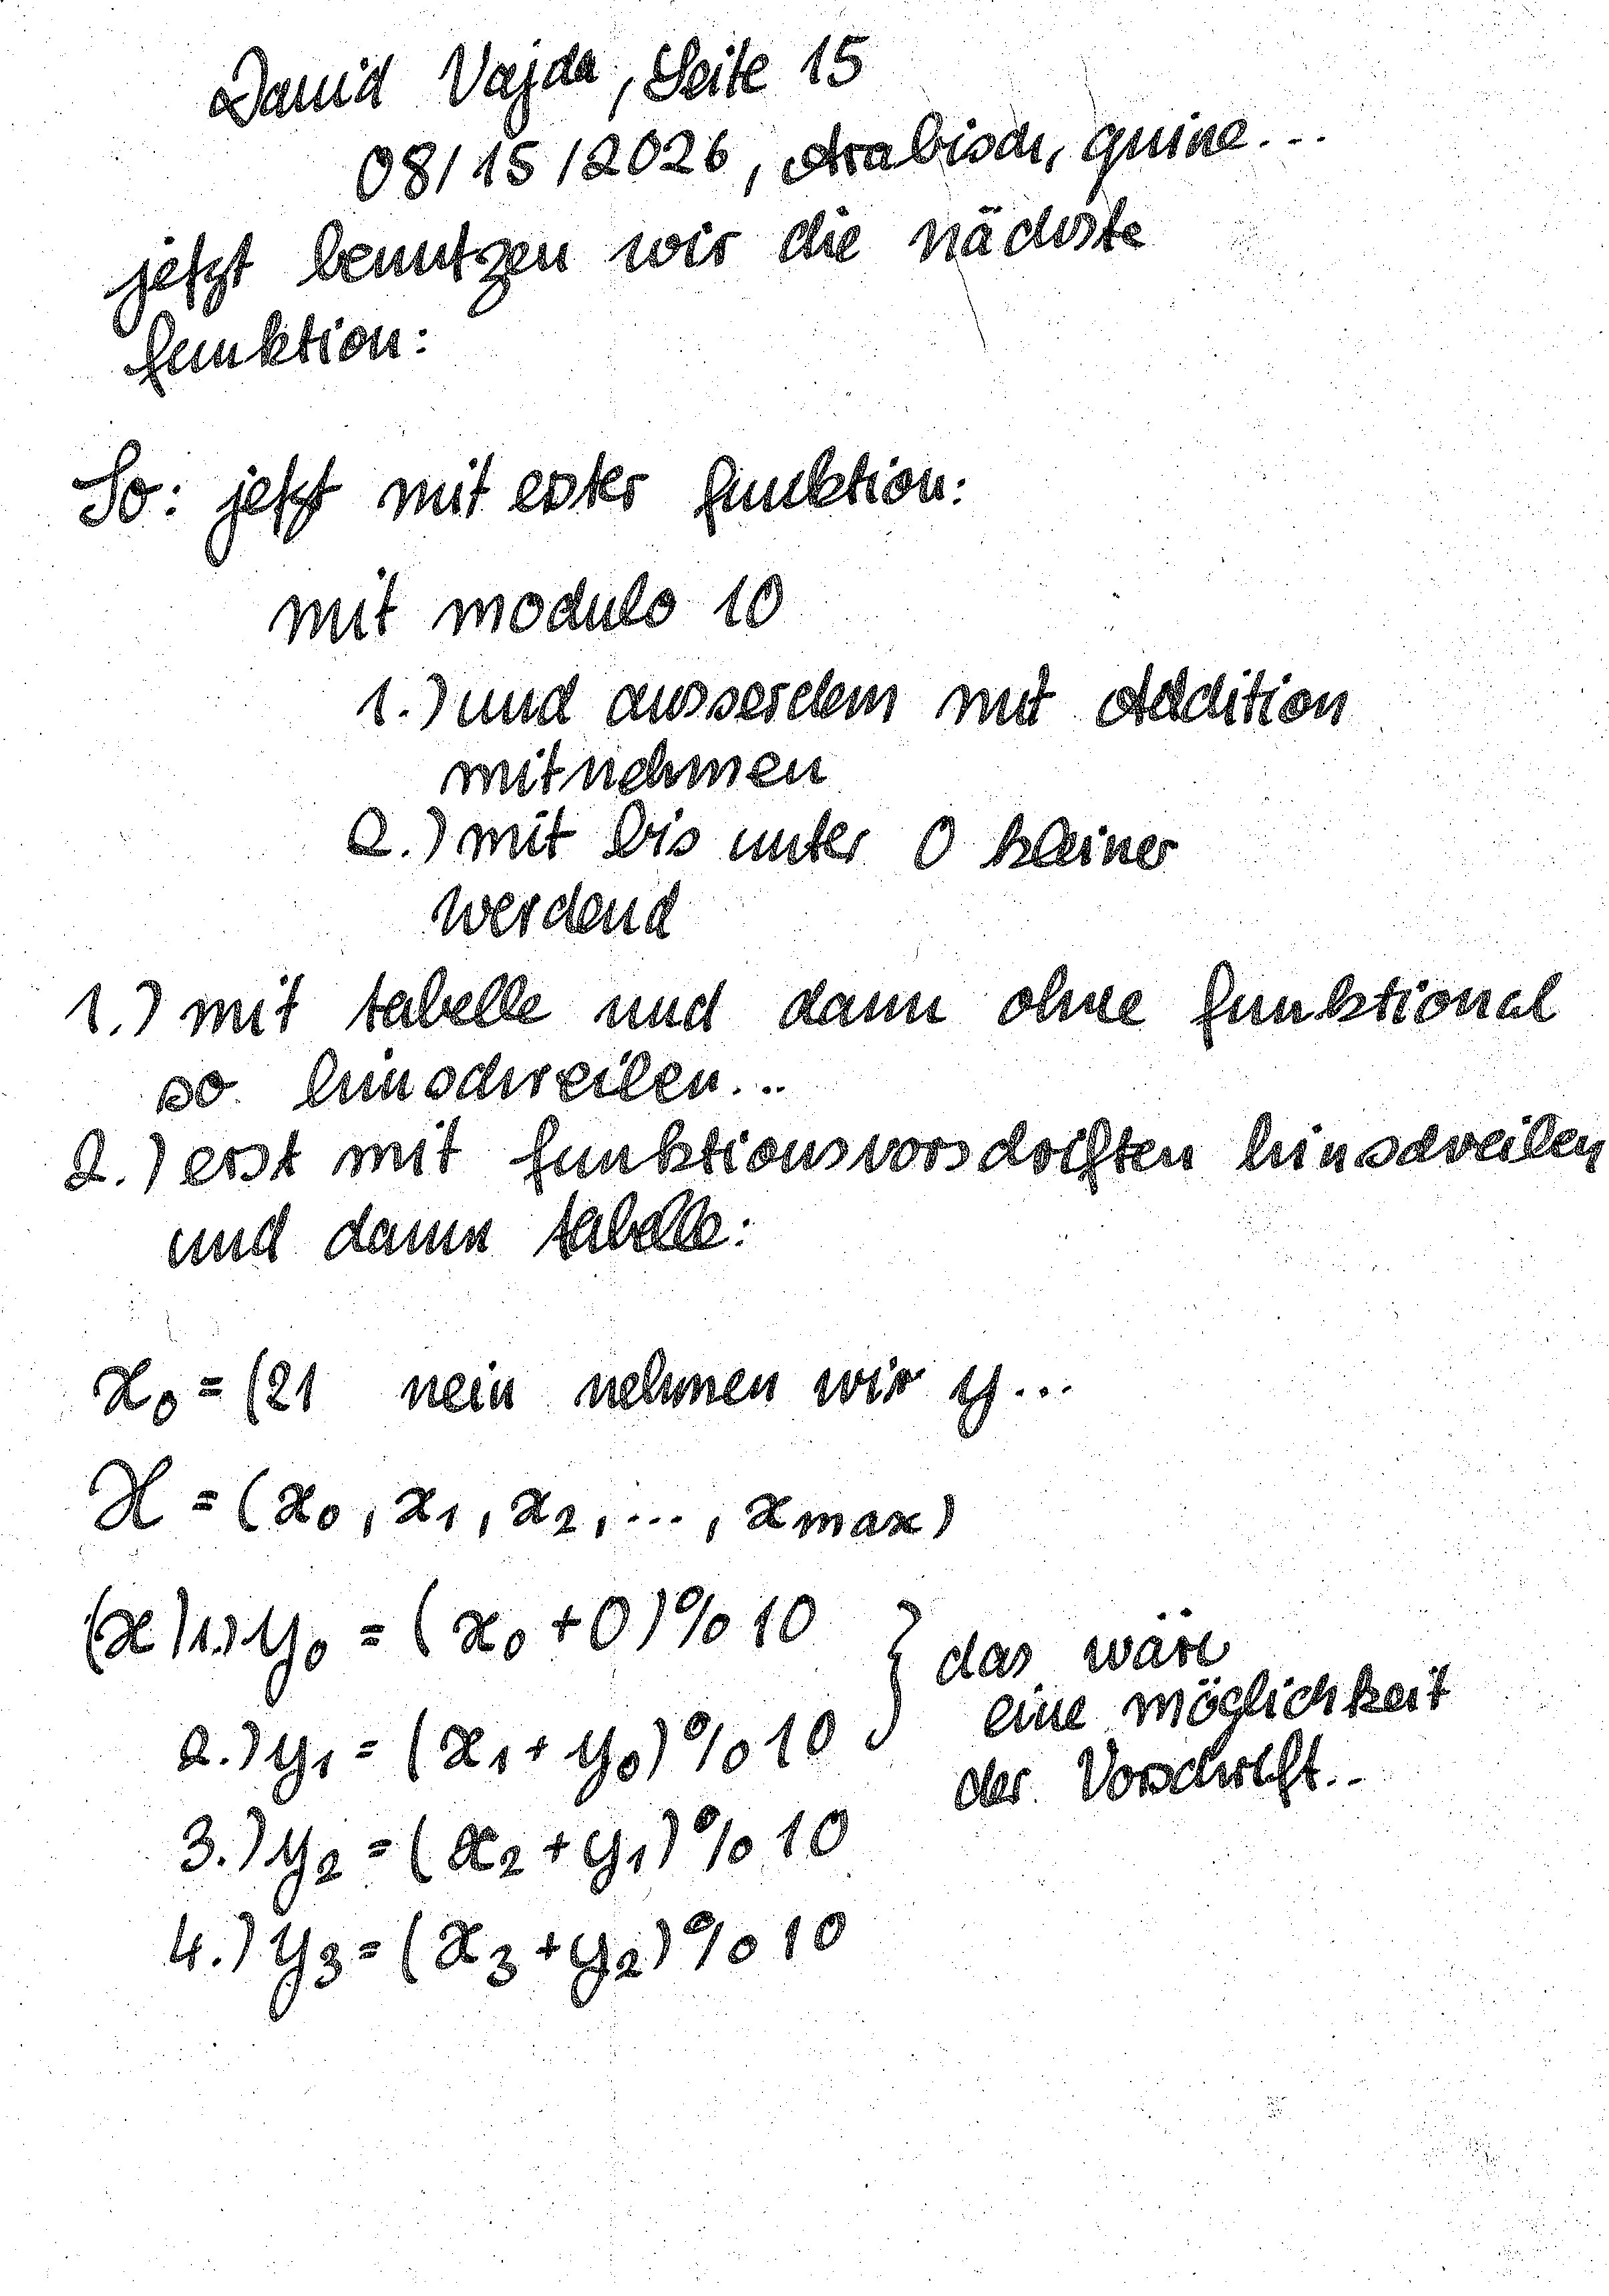 David Vajda, Seite 15
08/15/2026, Arabisch, quine...
jetzt benutzen wir die nächste
funktion:
So: jetzt mit erster funktion:
mit modulo 10
1.) und ausserdem mit Addition
mitnehmen
2.) mit bis unter 0 kleiner
werdend
1.) mit tabelle und dann ohne funktional
so hinschreiben...
2.) erst mit funktionsvorschriften hinschreiben
und dann tabelle:
x₀ = (21 nein nehmen wir y...
X = (x₀, x₁, x₂, ..., xmax)
(x) 1.) y₀ = (x₀ + 0) % 10 } das wäre
eine möglichkeit
2.) y₁ = (x₁ + y₀) % 10 der Vorschrift...
3.) y₂ = (x₂ + y₁) % 10
4.) y₃ = (x₃ + y₂) % 10